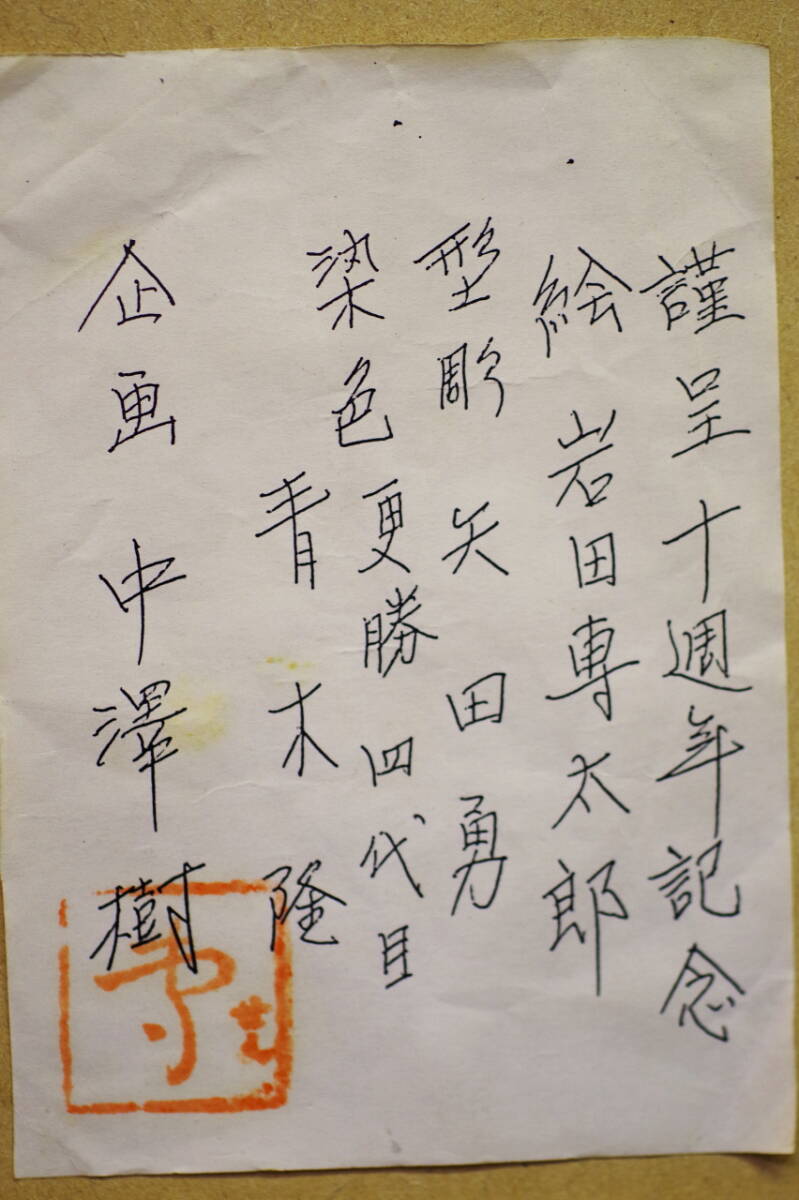 謹呈十週年記念
絵 岩田専太郎
型彫 矢田勇
染色更勝 四代目
青木隆
企画 中澤樹